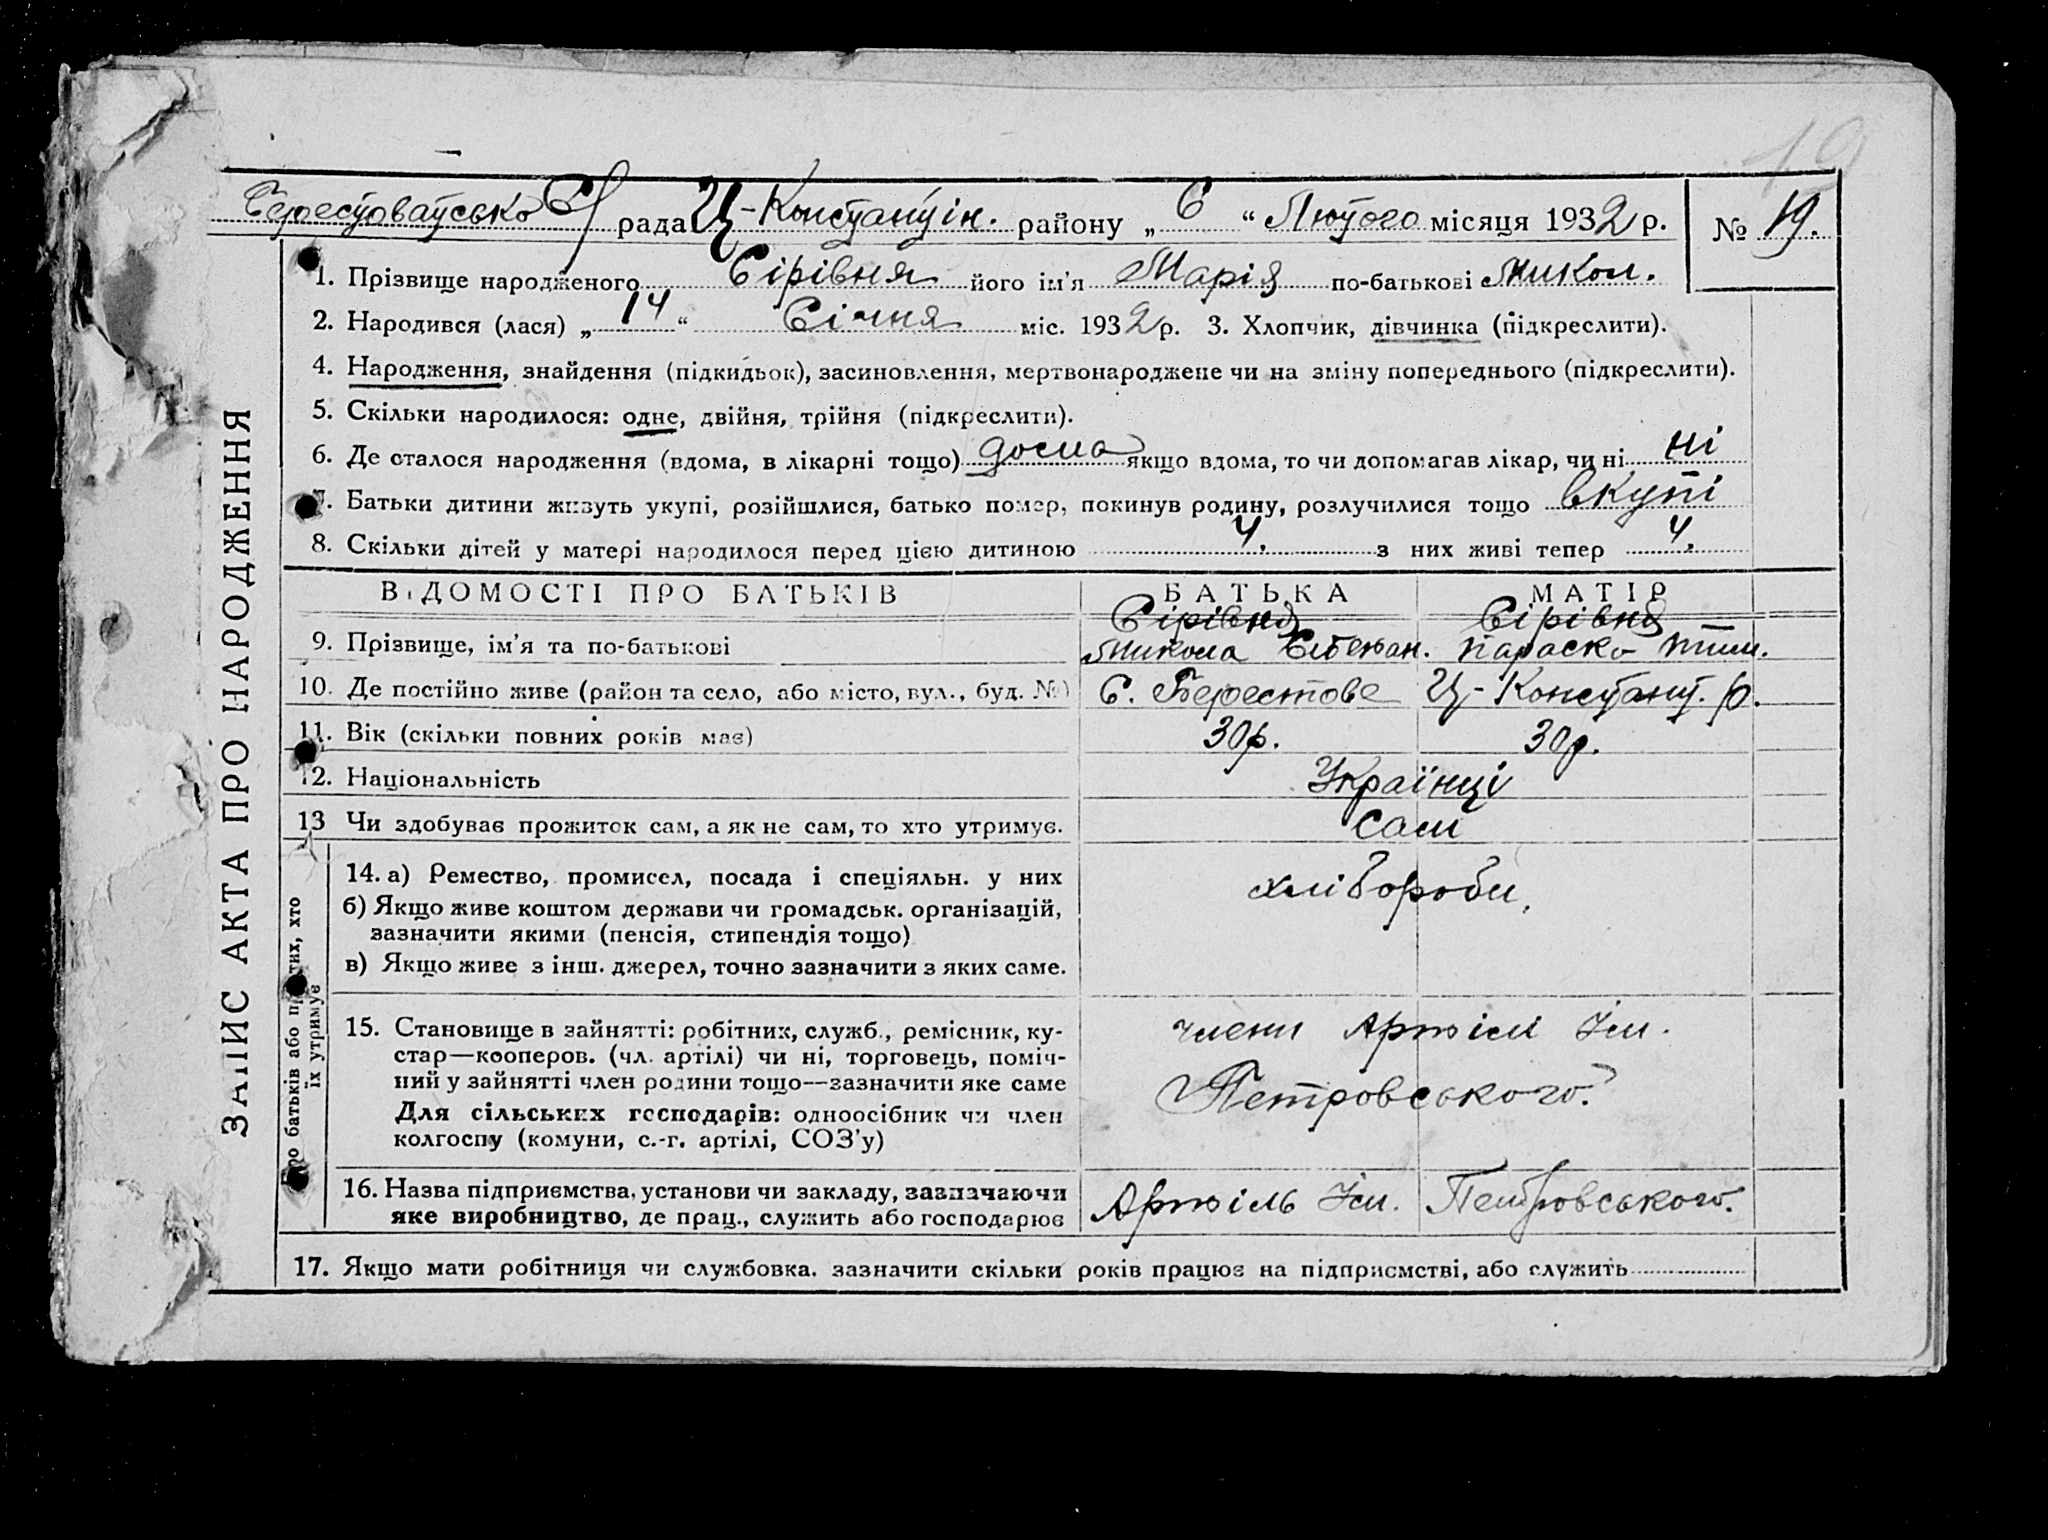 19
Берестоватсько С/рада Ц-Константін. району „ 6 “ Лютого місяця 1932 р. № 19.
ЗАПИС АКТА ПРО НАРОДЖЕННЯ
1. Прізвище народженого Сірівня його ім'я Марія по-батькові Микол.
2. Народився (лася) „ 14 “ Січня міс. 1932 р. 3. Хлопчик, дівчинка (підкреслити).
4. Народження, знайдення (підкидьок), засиновлення, мертвонароджене чи на зміну попереднього (підкреслити).
5. Скільки народилося: одне, двійня, трійня (підкреслити).
6. Де сталося народження (вдома, в лікарні тощо) дома якщо вдома, то чи допомагав лікар, чи ні ні
7. Батьки дитини живуть укупі, розійшлися, батько помер, покинув родину, розлучилися тощо вкупі
8. Скільки дітей у матері народилося перед цією дитиною 4. з них живі тепер 4.
ВІДОМОСТІ ПРО БАТЬКІВ БАТЬКА МАТІР
Сірівня Сірівня
9. Прізвище, ім'я та по-батькові Микола Степан. Параска Тим.
10. Де постійно живе (район та село, або місто, вул., буд. №) С. Берестове Ц-Констант. р.
11. Вік (скільки повних років має) 30р. 30р.
12. Національність Українці
13 Чи здобуває прожиток сам, а як не сам, то хто утримує. Сами
Про батьків або про тих, хто
їх утримує
14. а) Ремество, промисел, посада і спеціяльн. у них хлібороби,
б) Якщо живе коштом держави чи громадськ. організацій,
зазначити якими (пенсія, стипендія тощо)
в) Якщо живе з інш. джерел, точно зазначити з яких саме.
15. Становище в зайнятті: робітник, служб., ремісник, ку- члени Артіли Ім.
стар—кооперов. (чл. артілі) чи ні, торговець, поміч-
ний у зайнятті член родини тощо—зазначити яке саме Петровського.
Для сільських господарів: одноосібник чи член
колгоспу (комуни, с.-г. артілі, СОЗ'у)
16. Назва підприємства, установи чи закладу, зазначаючи
яке виробництво, де прац., служить або господарює Артіль Ім. Петровського.
17. Якщо мати робітниця чи службовка, зазначити скільки років працює на підприємстві, або служить